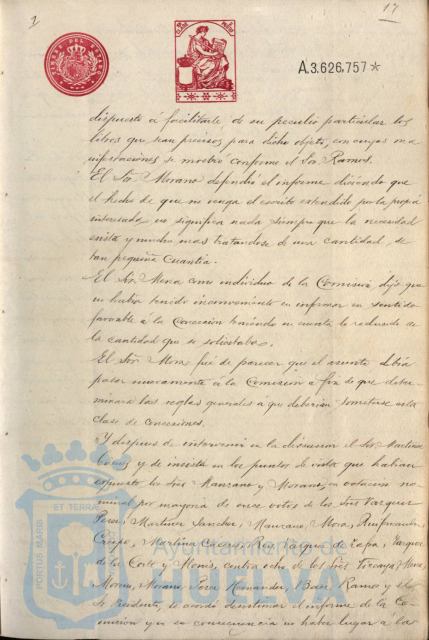 2
17
TIMBRE DEL ESTADO
A.3.626,757*
dispuesto á facilitarle de su peculio particular los
libros que sean precisos para dicho objeto, con cuyas ma
nifestaciones se mostró conforme el Sor. Ramos.
El Sor. Morano defendió el informe diciendo que
el hecho de que no venga el escrito estendido por la propia
interesada no significa nada siempre que la necesidad
exista y mucho mas tratandose de una cantidad de
tan pequeña cuantia.
El Sor. Mora como individuo de la Comisión, dijo que
no habia tenido inconveniente en informar en sentido
favorable á la concesion teniendo en cuenta lo reducido de
la cantidad que se solicitaba.
El Sor. Mora fué de parecer que el asunto debia
pasar nuevamente á la Comisión á fin de que deter-
minara las reglas generales á que deberian someterse esta
clase de concesiones.
Y despues de intervenir en la discusion el Sor. Martinez
y de insistir en los puntos de vista que habian
expuesto los Sres Manzano y Morano, en votacion no
minal por mayoria de once votos de los Sres Vazquez
Perez, Martinez Sanchez, Manzano, Mora,
Crespo, Martinez Cáceres, Rey, Jaque de Tapia, Vazquez
de la Corte y Monis, contra ocho de los Sres Vizcaya, Mora,
Moreno, Morano, Perez Hernandez, Baez, Ramos y el
Sr Presidente, se acordó desestimar el informe de la Co-
mision y en su consecuencia no haber lugar á la
ET TERRAE
PORTUS MARIS
Ayuntamiento de
HUELVA